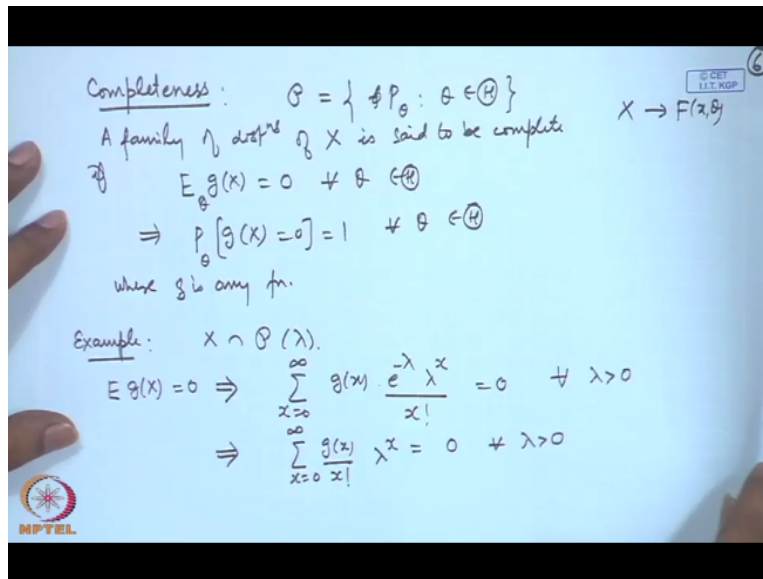 6
© CET
I.I.T. KGP
Completeness : 𝒫 = { P_θ : θ ∈ Ⓗ }
X → F(x,θ)
A family of distⁿˢ of X is said to be complete
if E_θ g(X) = 0 ∀ θ ∈ Ⓗ
⇒ P_θ [g(X) = 0] = 1 ∀ θ ∈ Ⓗ
where g is any fn.
Example : X ∩ 𝒫 (λ).
E g(X) = 0 ⇒ ∑_{x=0}^{∞} g(x) · \frac{e^{-λ} λ^x}{x!} = 0 ∀ λ>0
⇒ ∑_{x=0}^{∞} \frac{g(x)}{x!} λ^x = 0 ∀ λ>0
NPTEL